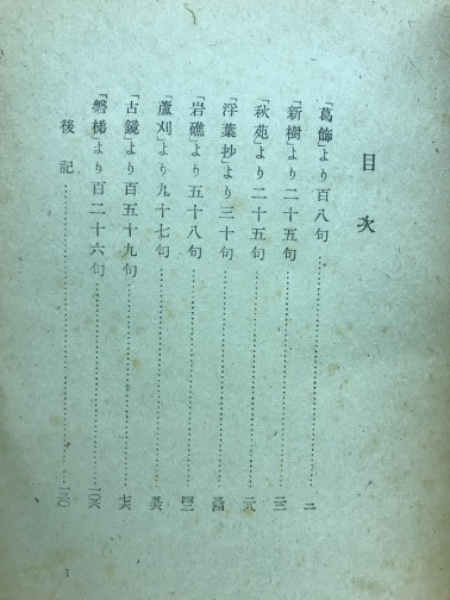 目次
「葛飾」より百八句……………………二
「新樹」より二十五句……………………二三
「秋苑」より二十五句……………………二八
「浮葉抄」より三十句……………………三四
「岩礁」より五十八句……………………四二
「蘆刈」より九十七句……………………五六
「古鏡」より百五十九句……………………七六
「磐梯」より百二十六句……………………一〇六
後記……………………一三〇
1